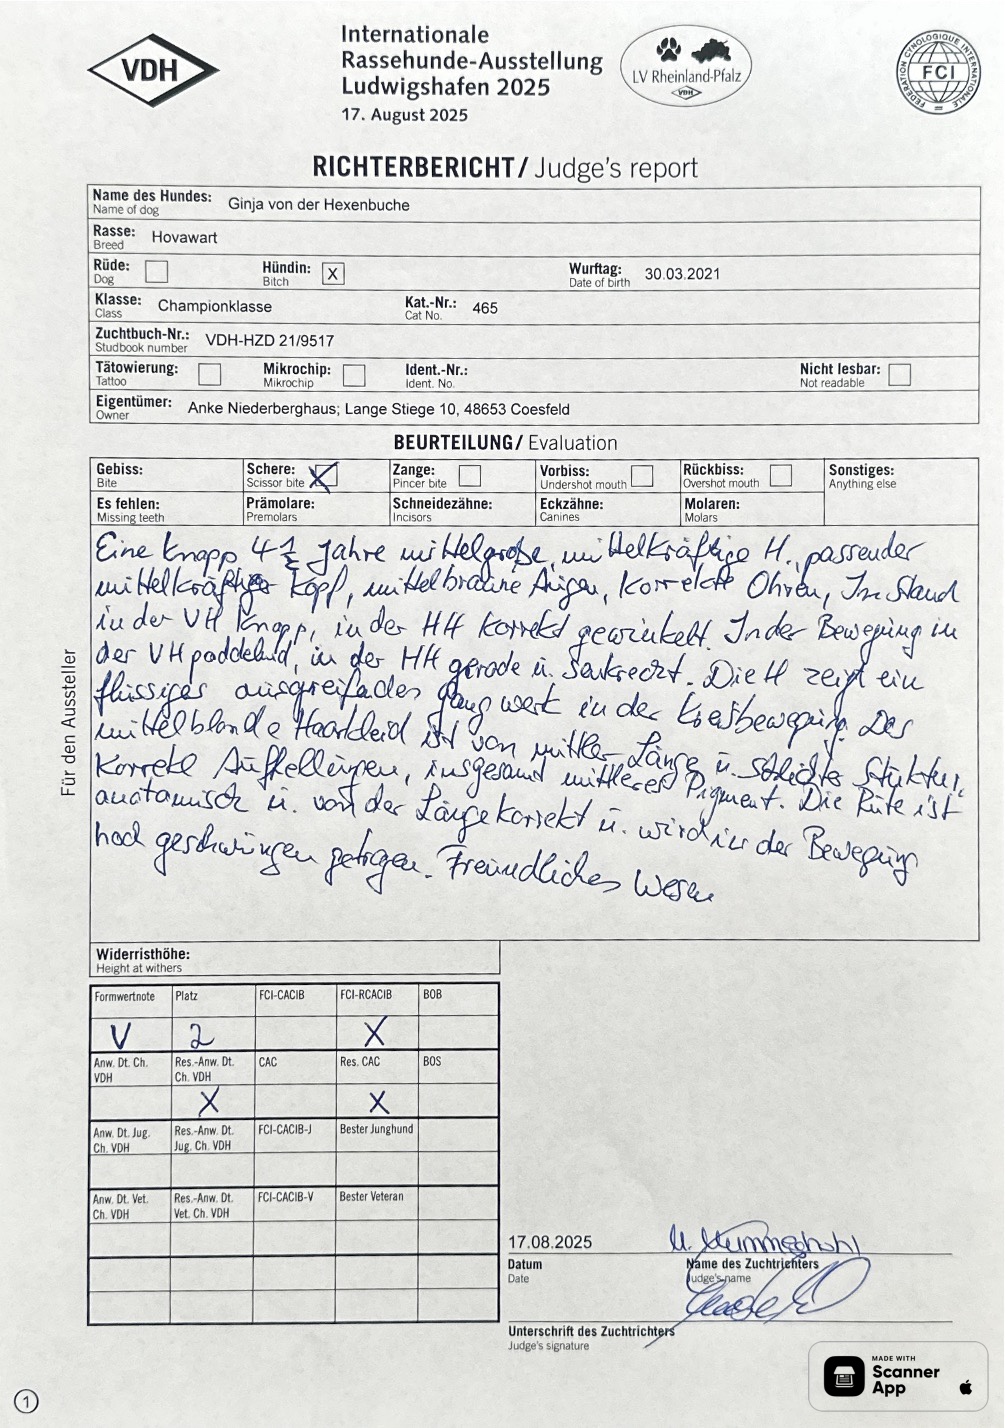 VDH
Internationale
Rassehunde-Ausstellung
Ludwigshafen 2025
17. August 2025
LV Rheinland-Pfalz
VDH
FEDERATION CYNOLOGIQUE INTERNATIONALE
FCI
RICHTERBERICHT/ Judge's report
Name des Hundes: Ginja von der Hexenbuche
Name of dog
Rasse: Hovawart
Breed
Rüde: Hündin: X Wurftag: 30.03.2021
Dog Bitch Date of birth
Klasse: Championklasse Kat.-Nr.: 465
Class Cat No.
Zuchtbuch-Nr.: VDH-HZD 21/9517
Studbook number
Tätowierung: Mikrochip: Ident.-Nr.: Nicht lesbar:
Tattoo Mikrochip Ident. No. Not readable
Eigentümer: Anke Niederberghaus; Lange Stiege 10, 48653 Coesfeld
Owner
BEURTEILUNG/ Evaluation
Gebiss: Schere: X Zange: Vorbiss: Rückbiss: Sonstiges:
Bite Scissor bite Pincer bite Undershot mouth Overshot mouth Anything else
Es fehlen: Prämolare: Schneidezähne: Eckzähne: Molaren:
Missing teeth Premolars Incisors Canines Molars
Eine knapp 4 1/2 Jahre mittelgroße, mittelkräftige H., passender
mittelkräftiger Kopf, mittelbraune Augen, korrekte Ohren, Im Stand
in der VH knapp, in der HH korrekt gewinkelt. In der Bewegung in
der VH paddelnd, in der HH gerade u. senkrecht. Die H zeigt ein
flüssiges ausgreifendes Gangwerk in der Kreisbewegung. Das
mittelblonde Haarkleid ist von mittler Länge u. schlichter Struktur,
korrekte Aufhellungen, insgesamt mittleres Pigment. Die Rute ist
anatomisch u. von der Länge korrekt u. wird in der Bewegung
hoch geschwungen getragen. Freundliches Wesen
Für den Aussteller
Widerristhöhe:
Height at withers
Formwertnote Platz FCI-CACIB FCI-RCACIB BOB
V 2 X
Anw. Dt. Ch. VDH Res.-Anw. Dt. Ch. VDH CAC Res. CAC BOS
X X
Anw. Dt. Jug. Ch. VDH Res.-Anw. Dt. Jug. Ch. VDH FCI-CACIB-J Bester Junghund
Anw. Dt. Vet. Ch. VDH Res.-Anw. Dt. Vet. Ch. VDH FCI-CACIB-V Bester Veteran
17.08.2025
Datum Name des Zuchtrichters
Date Judge's name
Unterschrift des Zuchtrichters
Judge's signature
MADE WITH
Scanner
App
1